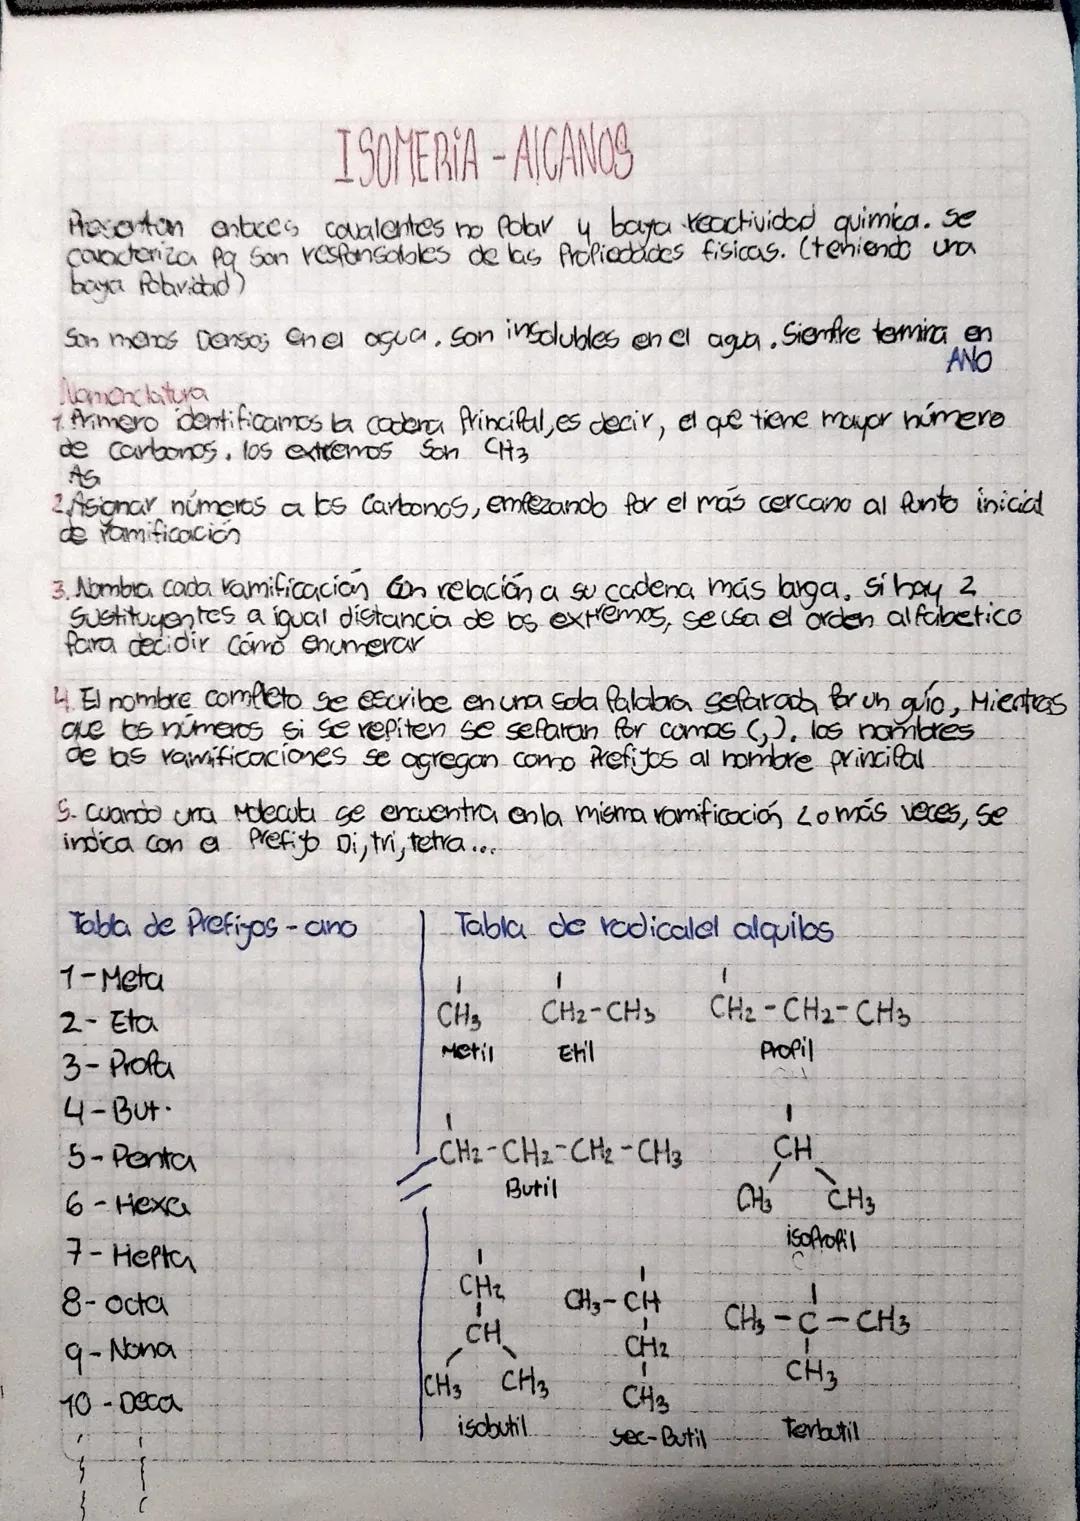 ISOMERIA - AlCANOS
Presentan enlaces covalentes no Polar y baya reactividad quimica. Se
caracteriza Pq Son responsables de las Propiedades físicas. (teniendo una
baya Polaridad)
Son menos Densos en el agua. son insolubles en el agua. Siempre termina en
ANO
Nomenclatura
1. Primero identificamos la cadena Principal, es decir, el que tiene mayor número
de carbonos. los extremos Son CH3
As
2. Asignar números a los Carbonos, empezando por el más cercano al Punto inicial
de ramificación
3. Nombra cada ramificación Con relación a su cadena más larga. Si hay 2
Sustituyentes a igual distancia de los extremos, se usa el orden alfabetico
para decidir Cómo enumerar
4. El nombre completo se escribe en una sola Palabra separada Por un guío, Mientras
que los números si se repiten se separan por comas (,). los nombres
de las ramificaciones se agregan como Prefijos al nombre principal
5. Cuando una Molecula se encuentra en la misma ramificación 2 o más veces, se
indica con el Prefijo Di, tri, tetra...
Tabla de Prefijos - ano
1 - Meta
2 - Eta
3 - Propa
4 - But.
5 - Penta
6 - Hexa
7 - Hepta
8 - octa
9 - Nona
10 - Deca
Tabla de radicalel alquilos
CH3 CH2-CH3 CH2-CH2-CH3
Metil Etil Propil
CH2-CH2-CH2-CH3 CH
CH3 CH3
Butil isopropil
CH2 CH3-CH CH3-C-CH3
CH CH2 CH3
CH3 CH3 CH3
isobutil sec-Butil Terbutil